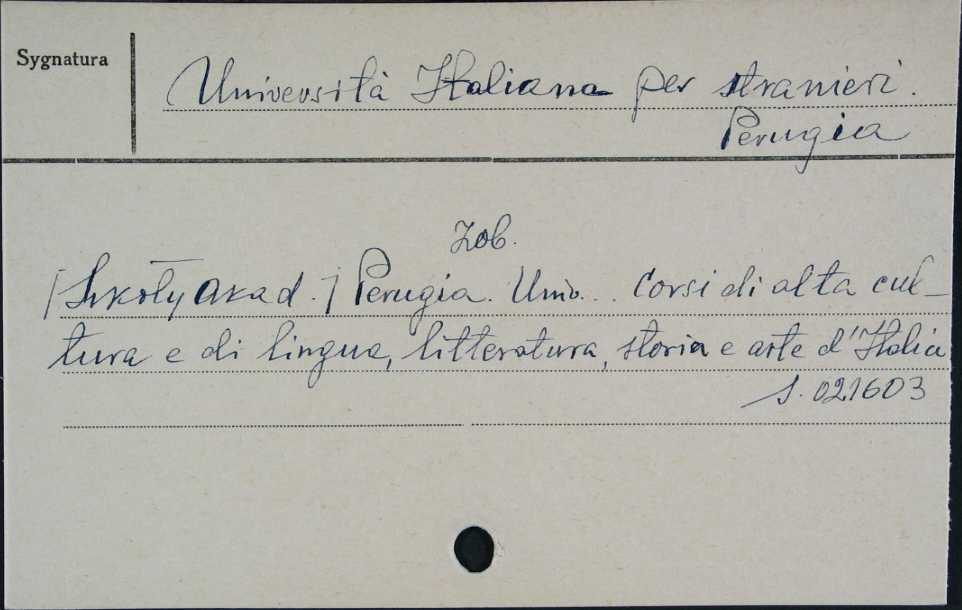 Sygnatura
Università Italiana per stranieri.
Perugia
zob.
[Szkoły Akad.] Perugia. Univ... Corsi di alta cul-
tura e di lingua, litteratura, storia e arte d'Italia
S. 021603